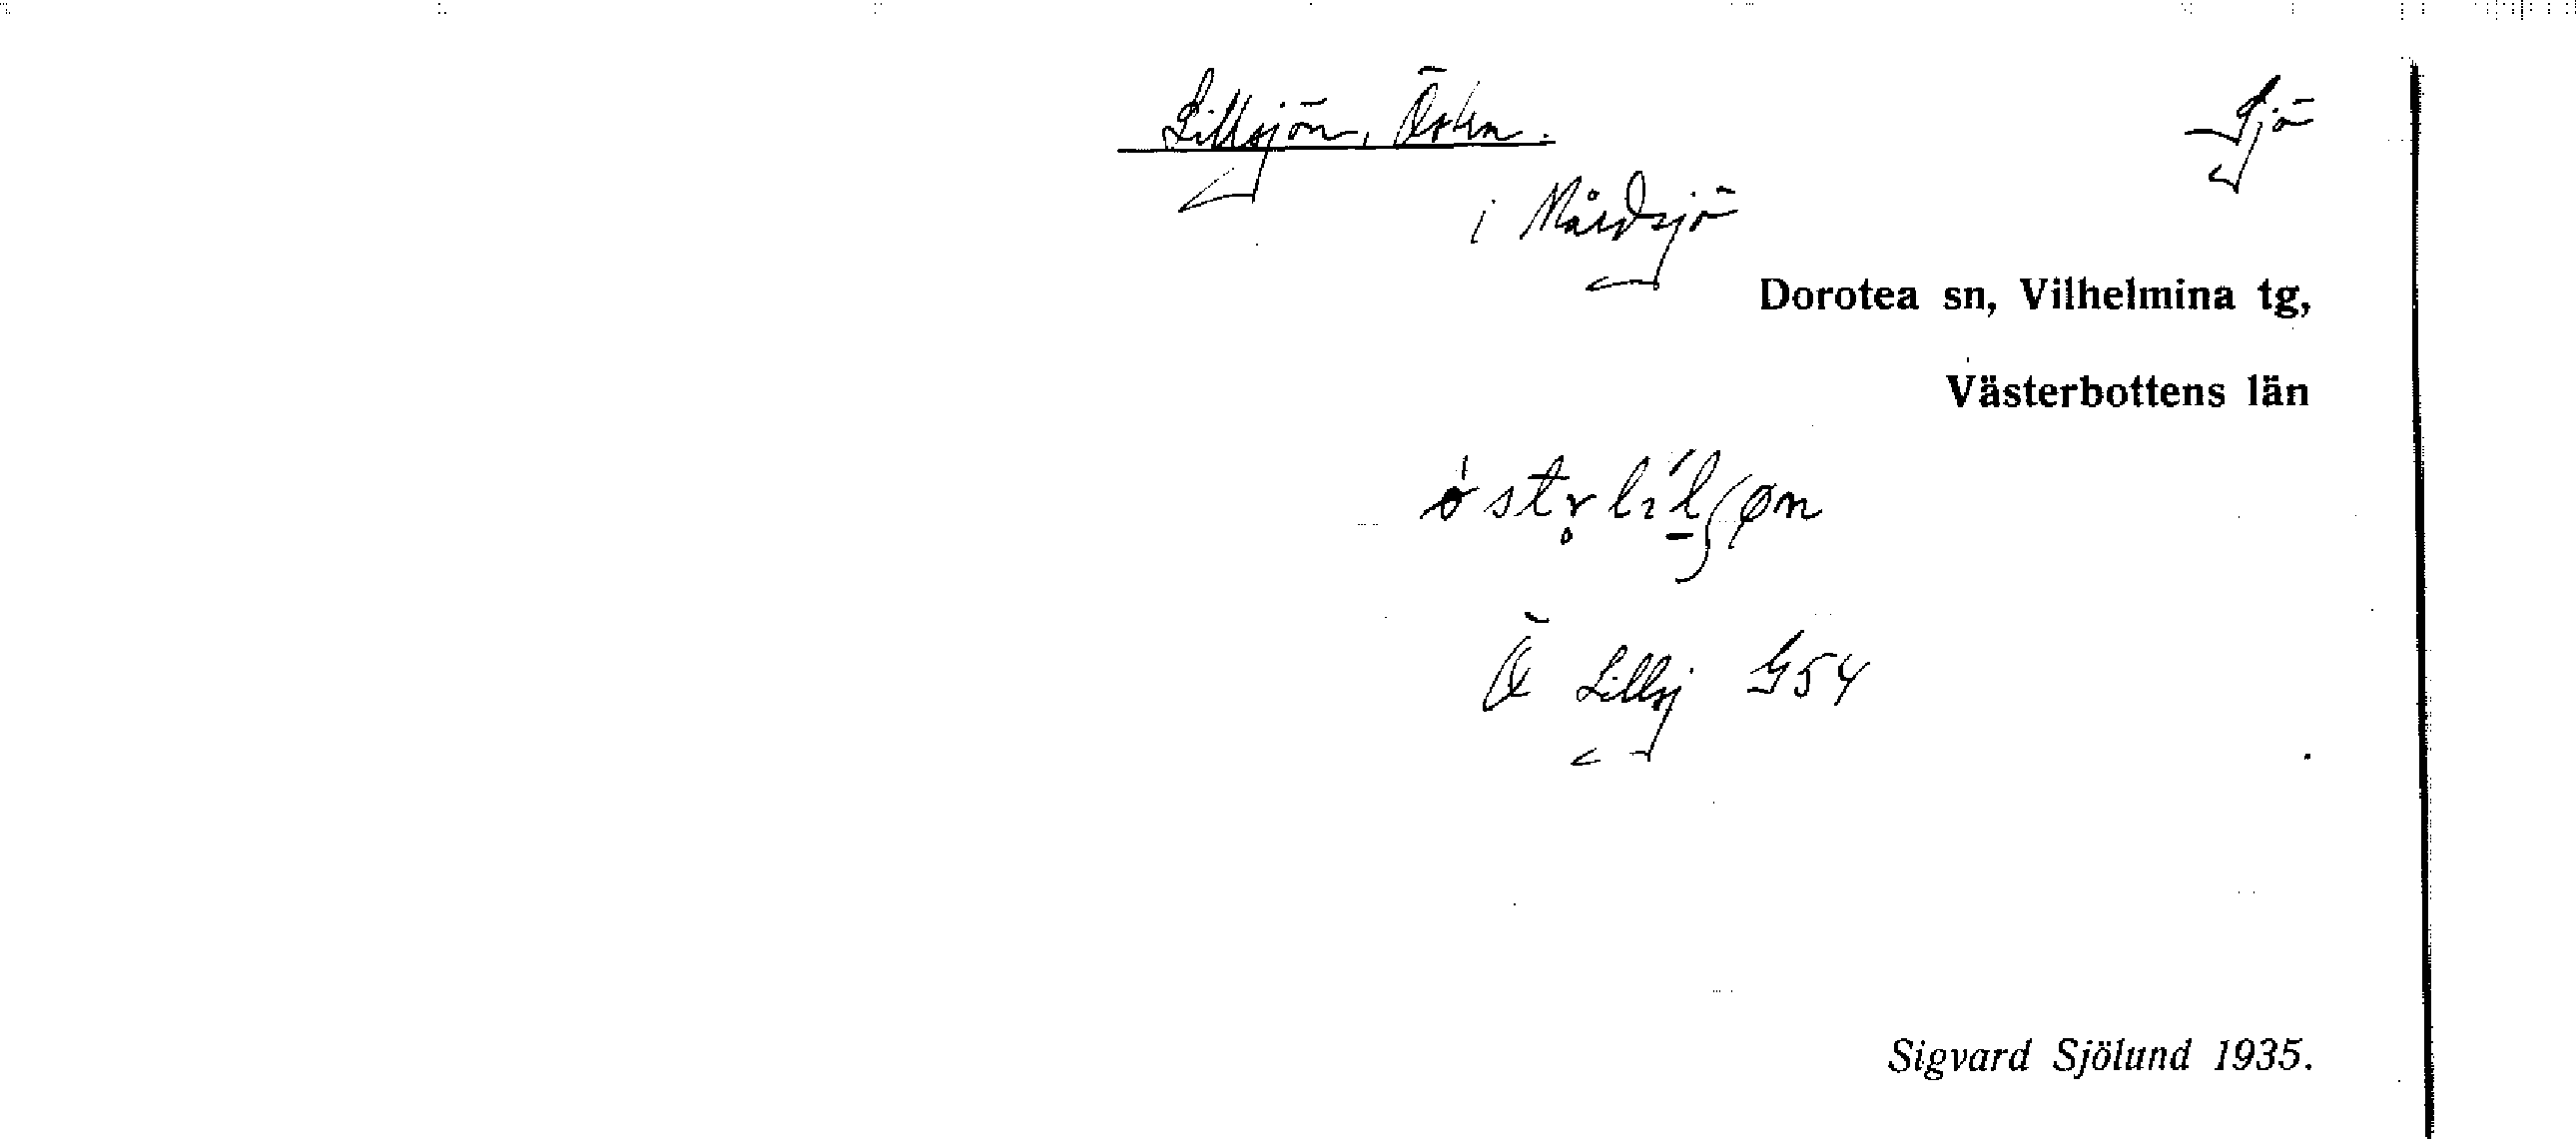 Lillsjön, Östra. Sjö
i Mårdsjö
Dorotea sn, Vilhelmina tg,
Västerbottens län
Ö Lillsj G54
Sigvard Sjölund 1935.